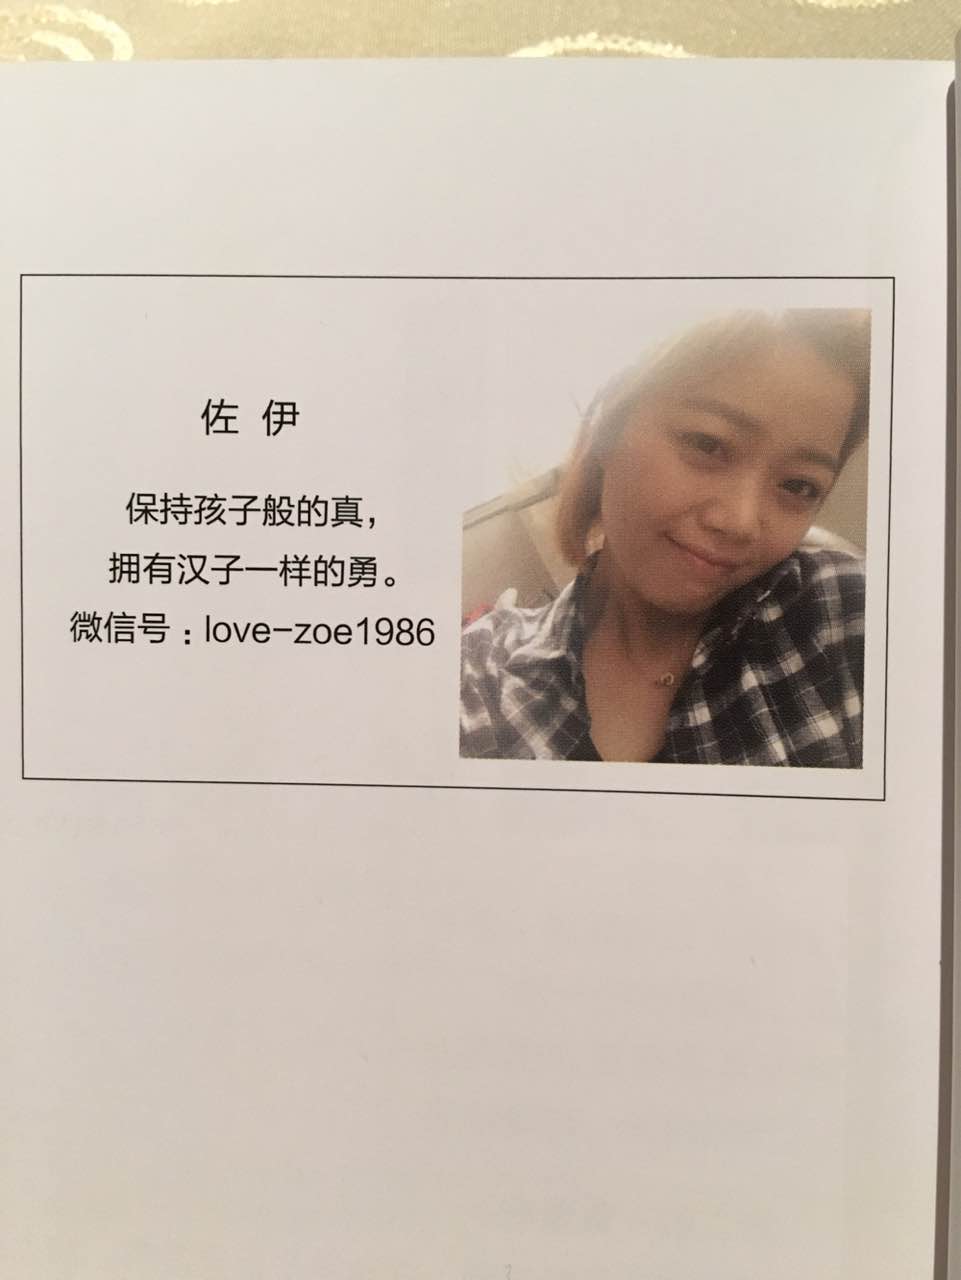 佐伊
保持孩子般的真，
拥有汉子一样的勇。
微信号：love-zoe1986